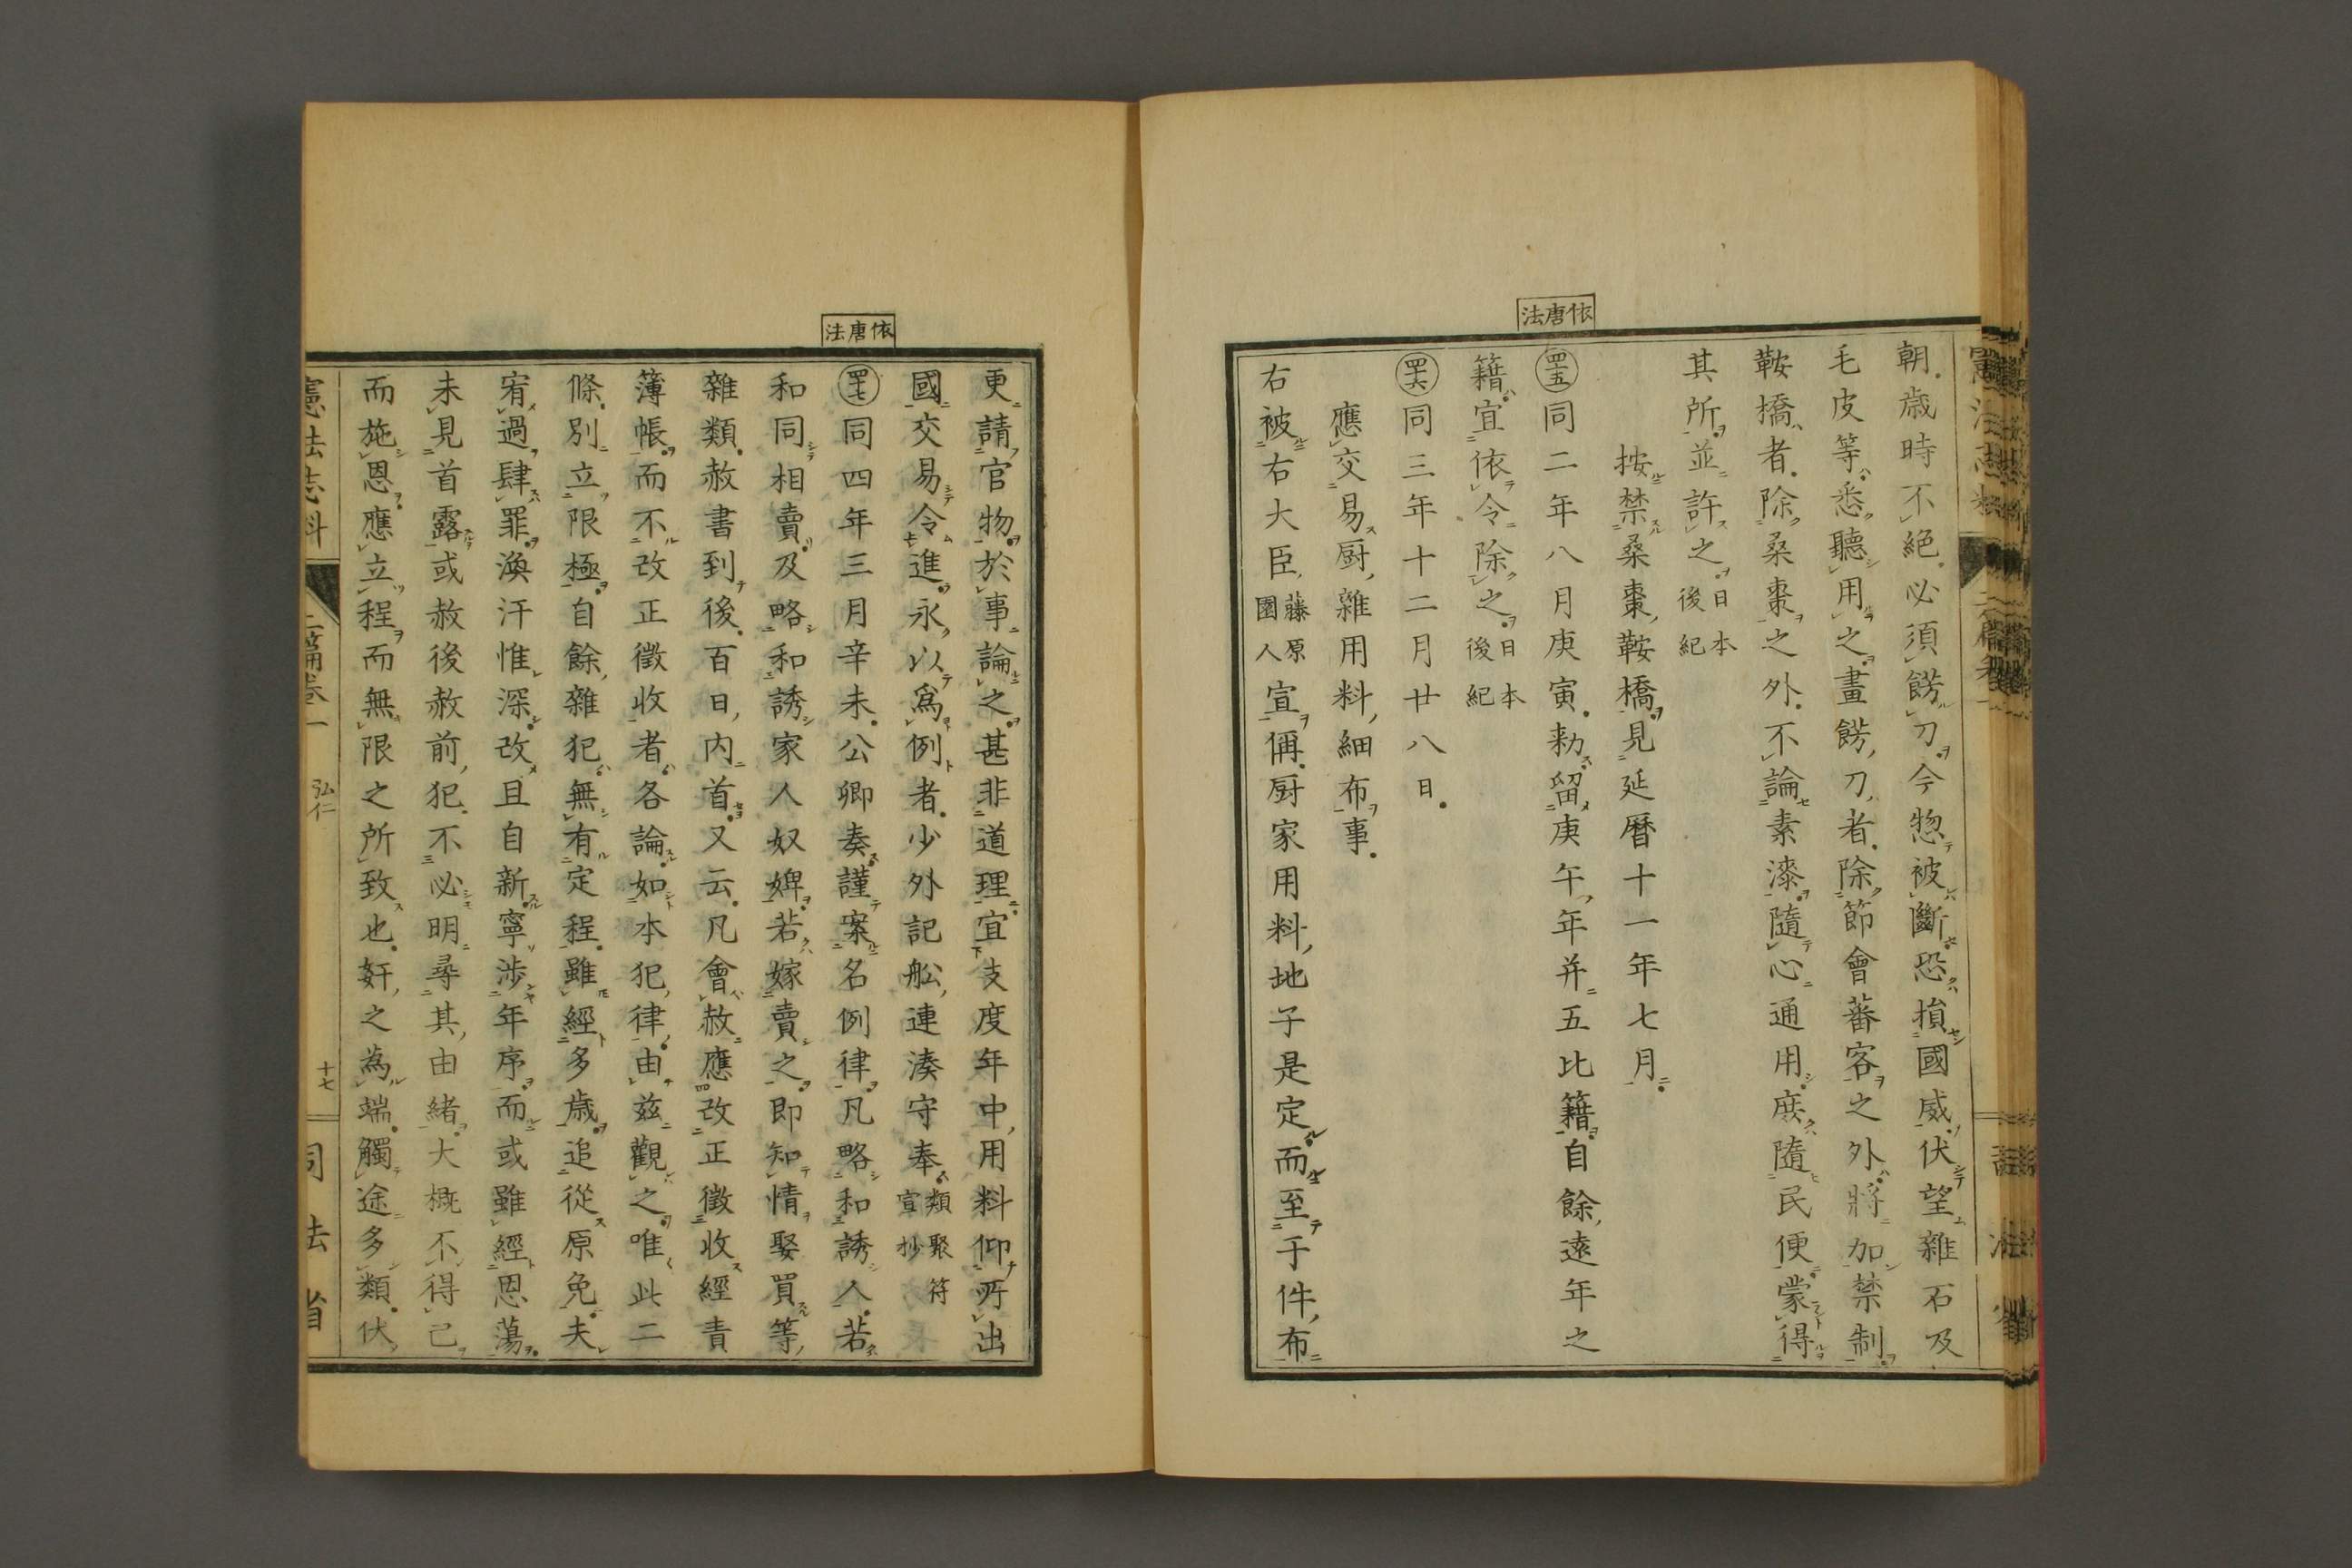 依唐法
朝歳時不絶必須餝刀今惣被斷恐損國威伏望雜石及
毛皮等悉聽用之畫餝刀者除節會蕃客之外將加禁制
鞍橋者除桑棗之外不論素漆隨心通用庶隨民便蒙得
其所並許之日本後紀
按禁桑棗鞍橋見延曆十一年七月
四五同二年八月庚寅勅留庚午年并五比籍自餘遠年之
籍宜依令除之日本後紀
四六同三年十二月廿八日
應交易厨雜用料細布事
右被右大臣藤原園人宣偁厨家用料地子是定而至于件布
依唐法
更請官物於事論之甚非道理宜支度年中用料仰所出
國交易令進永以爲例者少外記舩連湊守奉類聚符宣抄
四七同四年三月辛未公卿奏謹案名例律凡略和誘人若
和同相賣及略和誘家人奴婢若嫁賣之即知情娶買等
雜類赦書到後百日内首又云凡會赦應改正徵收經責
薄帳而不改正徵收者各論如本犯律由玆觀之唯此二
條別立限極自餘雜犯無有定程雖經多歳追從原免夫
宥過肆罪渙汗惟深改且自新寧涉年序而或雖經恩蕩
未見首露或赦後赦前犯不必明尋其由緒大概不得已
而施恩應立程而無限之所致也奸之為端觸途多類伏
憲法志料
二篇卷一
弘仁
十七
司法省